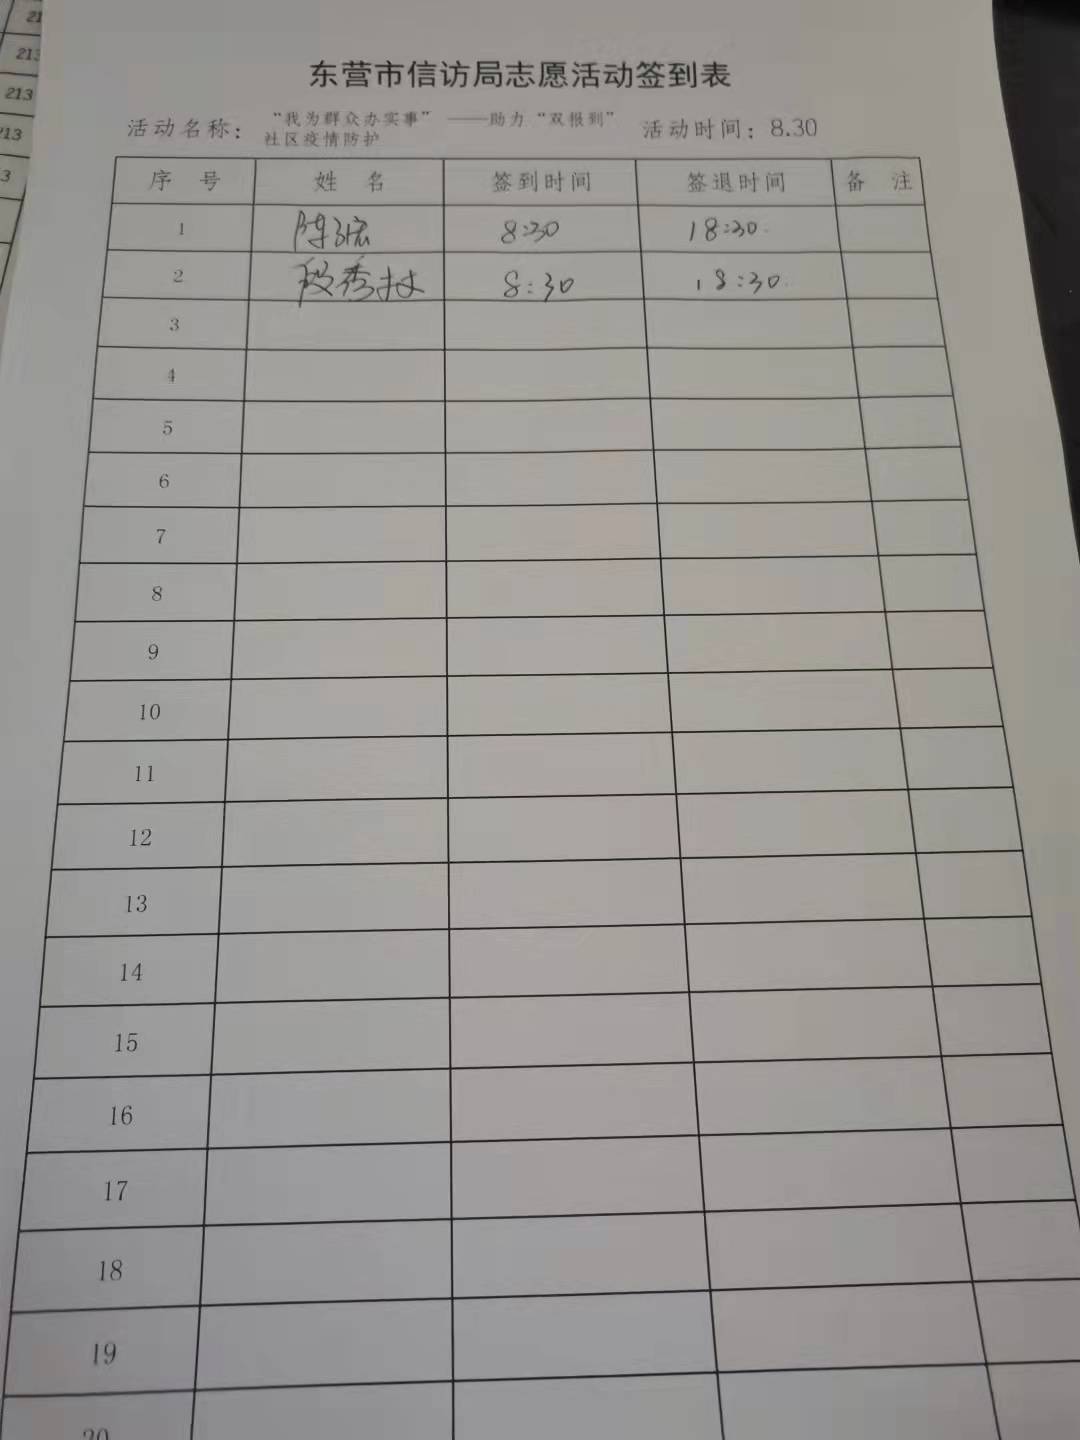 东营市信访局志愿活动签到表
活动名称： “我为群众办实事” ——助力“双报到” 社区疫情防护 活动时间：8.30
序 号 姓 名 签到时间 签退时间 备 注
1 陈宏 8:30 18:30
2 段秀林 8:30 18:30
3
4
5
6
7
8
9
10
11
12
13
14
15
16
17
18
19
20
21
213
213
213
3